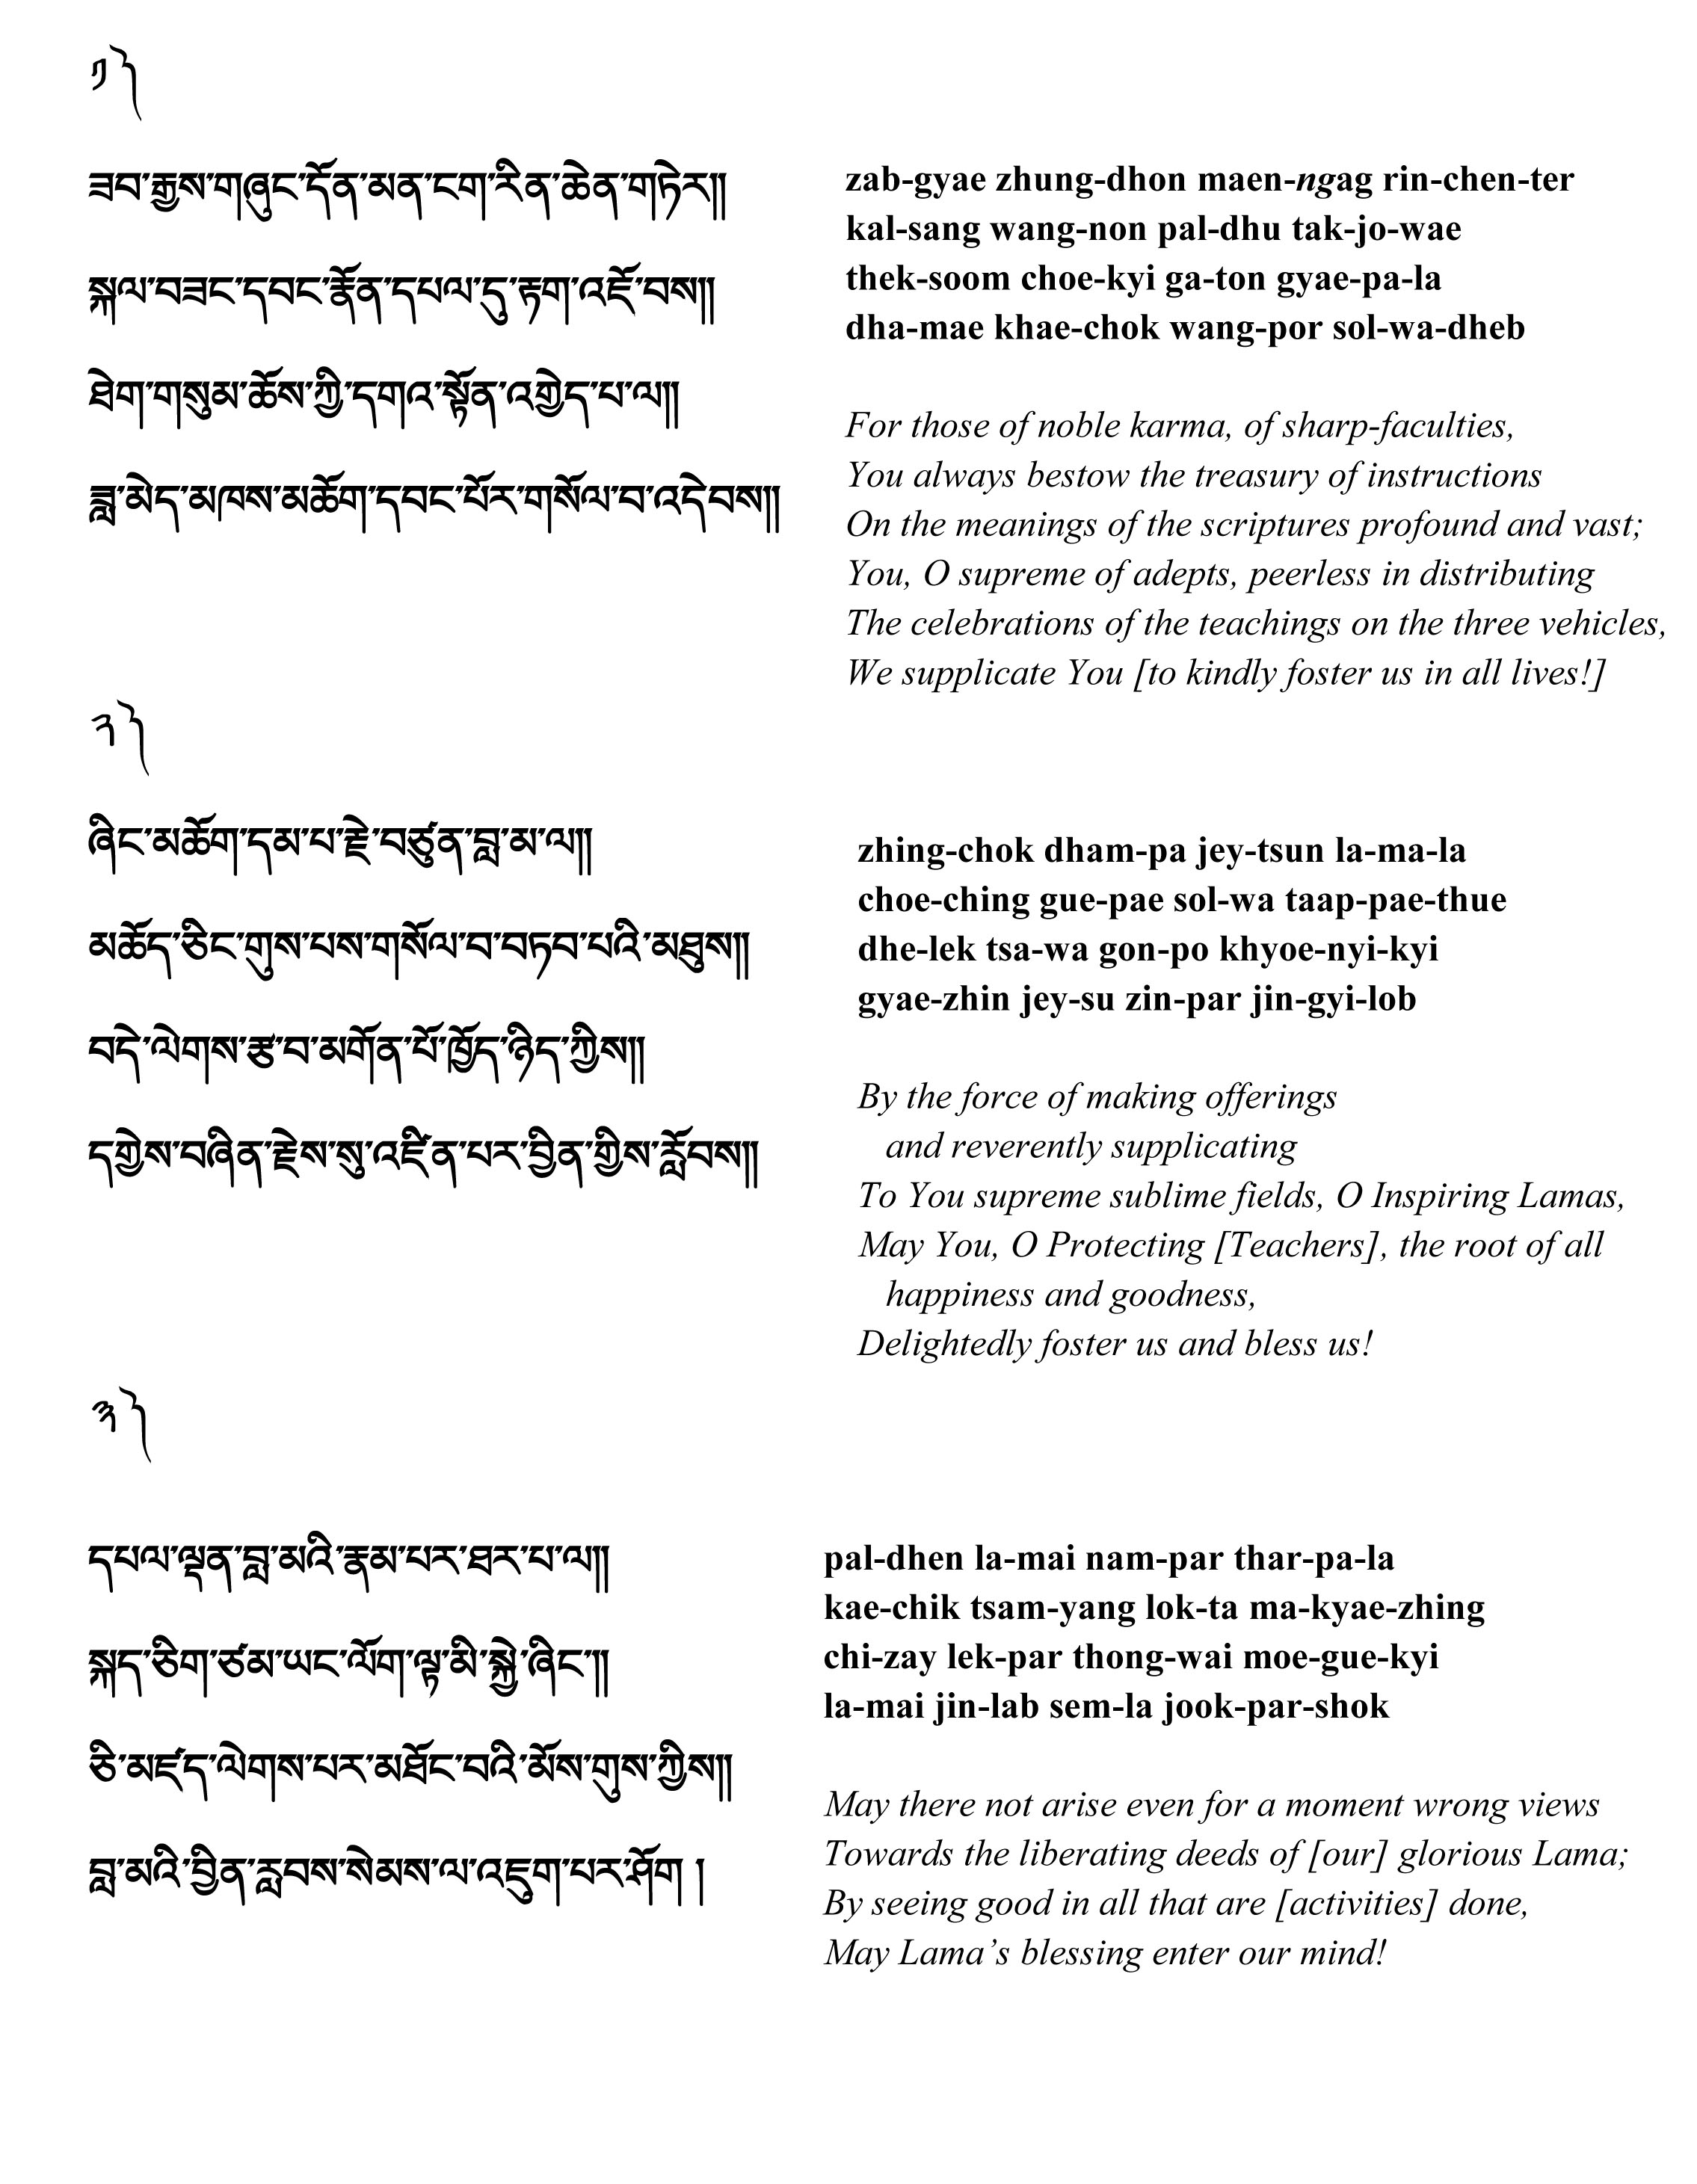 ༡༽
ཟབ་རྒྱས་གཞུང་དོན་མན་ངག་རིན་ཆེན་གཏེར།།
སྐལ་བཟང་དབང་རྣོན་དཔལ་དུ་རྟག་འཇོ་བས།།
ཐེག་གསུམ་ཆོས་ཀྱི་དགའ་སྟོན་འགྱེད་པ་ལ།།
ཟླ་མེད་མཁས་མཆོག་དབང་པོར་གསོལ་བ་འདེབས།།
zab-gyae zhung-dhon maen-ngag rin-chen-ter
kal-sang wang-non pal-dhu tak-jo-wae
thek-soom choe-kyi ga-ton gyae-pa-la
dha-mae khae-chok wang-por sol-wa-dheb
For those of noble karma, of sharp-faculties,
You always bestow the treasury of instructions
On the meanings of the scriptures profound and vast;
You, O supreme of adepts, peerless in distributing
The celebrations of the teachings on the three vehicles,
We supplicate You [to kindly foster us in all lives!]
༢༽
ཞིང་མཆོག་དམ་པ་རྗེ་བཙུན་བླ་མ་ལ།།
མཆོད་ཅིང་གུས་པས་གསོལ་བ་བཏབ་པའི་མཐུས།།
བདེ་ལེགས་རྩ་བ་མགོན་པོ་ཁྱོད་ཉིད་ཀྱིས།།
དགྱེས་བཞིན་རྗེས་སུ་འཛིན་པར་བྱིན་གྱིས་རློབས།།
zhing-chok dham-pa jey-tsun la-ma-la
choe-ching gue-pae sol-wa taap-pae-thue
dhe-lek tsa-wa gon-po khyoe-nyi-kyi
gyae-zhin jey-su zin-par jin-gyi-lob
By the force of making offerings
and reverently supplicating
To You supreme sublime fields, O Inspiring Lamas,
May You, O Protecting [Teachers], the root of all
happiness and goodness,
Delightedly foster us and bless us!
༣༽
དཔལ་ལྡན་བླ་མའི་རྣམ་པར་ཐར་པ་ལ།།
སྐད་ཅིག་ཙམ་ཡང་ལོག་ལྟ་མི་སྐྱེ་ཞིང་།།
ཅི་མཛད་ལེགས་པར་མཐོང་བའི་མོས་གུས་ཀྱིས།།
བླ་མའི་བྱིན་རླབས་སེམས་ལ་འཇུག་པར་ཤོག །
pal-dhen la-mai nam-par thar-pa-la
kae-chik tsam-yang lok-ta ma-kyae-zhing
chi-zay lek-par thong-wai moe-gue-kyi
la-mai jin-lab sem-la jook-par-shok
May there not arise even for a moment wrong views
Towards the liberating deeds of [our] glorious Lama;
By seeing good in all that are [activities] done,
May Lama’s blessing enter our mind!